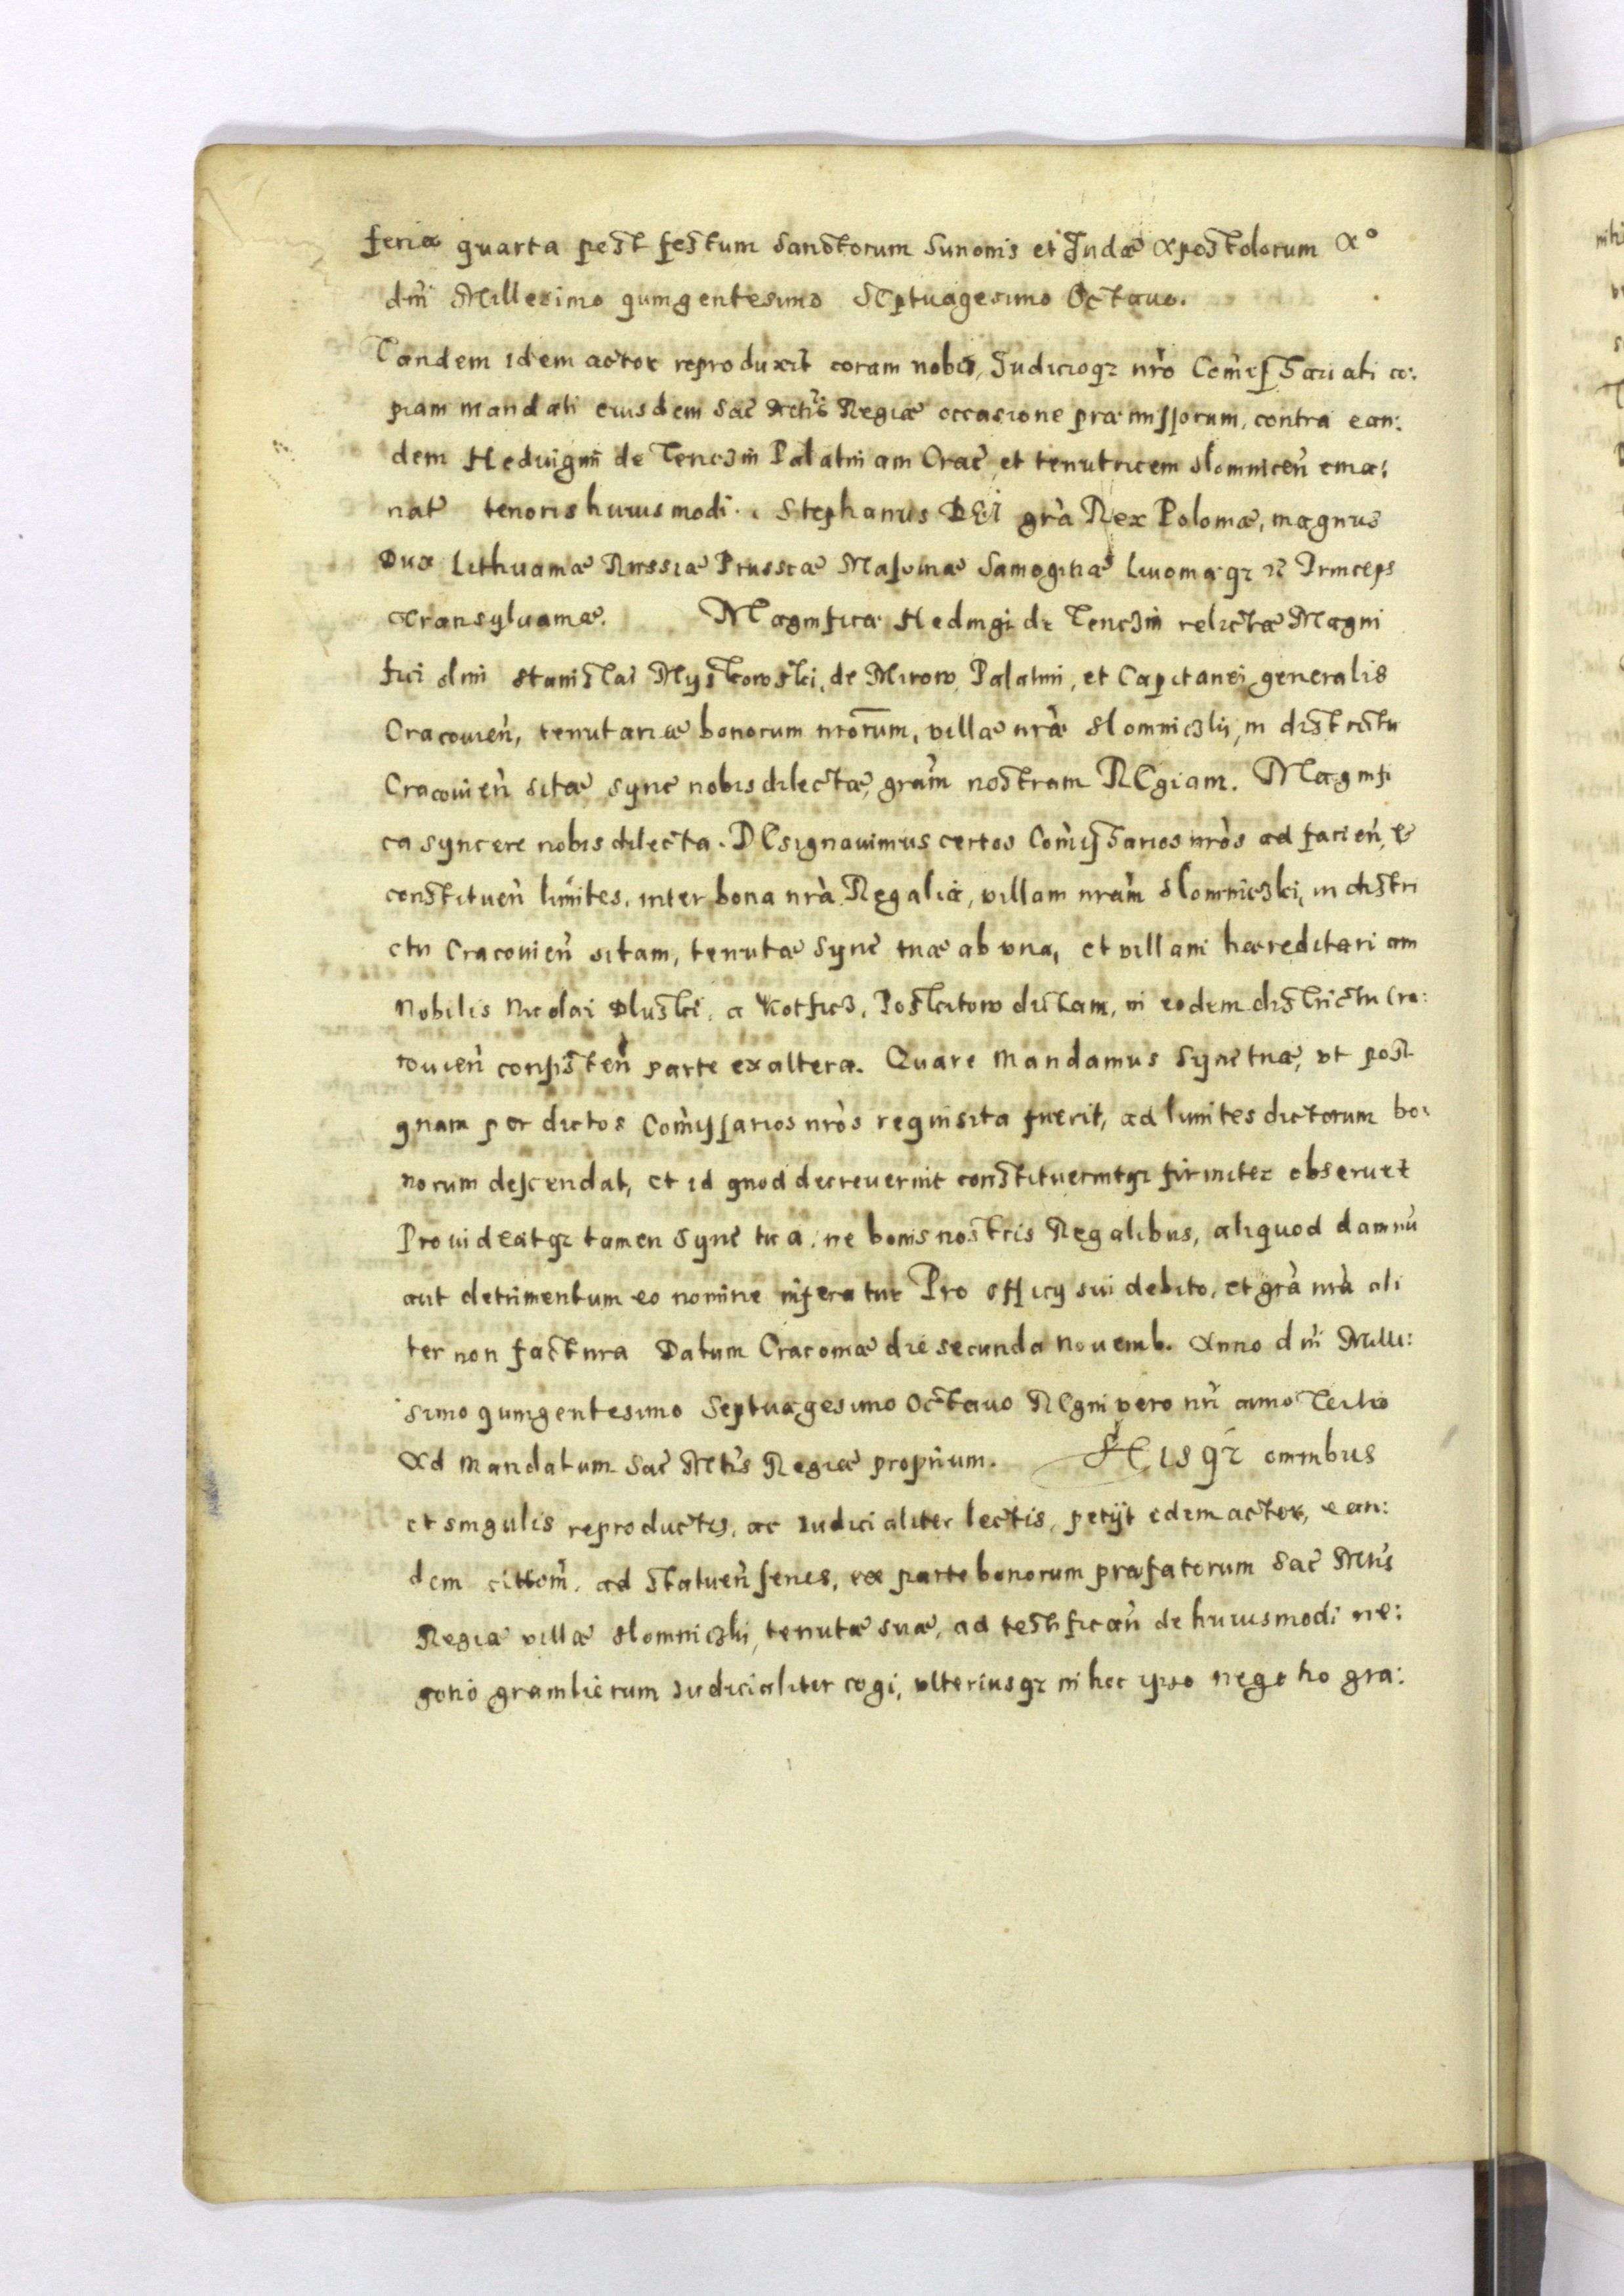 feria quarta post festum Sanctorum Simonis et Judæ Apostolorum A°
dñi Millesimo quingentesimo Septuagesimo Octauo.
Tandem idem actor reproduxit coram nobis, Judicioq3 nrò Comissariali co:
piam mandati eiusdem Sac̃ Mtis Regiæ occasione præmissorum, contra ean:
dem Heduigim de Tenczin Palatiniam Crac̃, et tenutricem Slomnicen̄ ema:
nat̃ tenoris huiusmodi. Stephanus DEI grà Rex Poloniæ, magnus
Dux Lithuaniæ Russiæ Prussiæ Masouiæ Samogitiæ Liuoniæq3 et Princeps
Transyluaniæ. Magnificæ Heduigi de Tenczin relictæ Magni
fici olim Stanislai Myszkowski, de Mirow, Palatini, et Capitanei generalis
Cracouien̄, tenutariæ bonorum nrōrum, villæ nræ Slomniczki, in districtu
Cracouien̄ sitæ, Sync̃ nobis dilectæ, gram̄ nostram REgiam. Magnifi
ca syncere nobis dilecta. DEsignauimus certos Comissarios nròs ad facien̄, et
constituen̄ limites, inter bona nrà Regalia, villam nram̄ Slomniczki, in distri
ctu Cracouien̄ sitam, tenutæ Sync̃ tuæ ab vna, et villam hæreditariam
Nobilis Nicolai Dluski, a Kotficz, Poskitow dictam, in eodem districtu Cra:
couien̄ consisten̄ parte ex altera. Quare mandamus Sync̃ tuæ, vt post
quam per dictos Comissarios nròs requisita fuerit, ad limites dictorum bo:
norum descendat, et id quod decreuerint constituerintq3 firmiter obseruet
Prouideatq3 tamen Sync̃ tua, ne bonis nostris Regalibus, aliquod damnū
aut detrimentum eo nomine inferatur Pro officij sui debito, et grà nrà ali
ter non factura Datum Cracouiæ die secunda Nouemb. Anno dñi Mille:
simo quingentesimo Septuagesimo Octauo REgni vero nrī anno Tertio
Ad mandatum Sac̃ Mtis Regiæ proprium. Hisq3 omnibus
et singulis reproductis, ac iudicialiter lectis, petijt idem actor, ean:
dem cittom̄, ad statuen̄ senes, ex parte bonorum præfatorum Sac̃ Mtis
Regiæ villæ Slomniczki, tenutæ suæ, ad testifican̄ de huiusmodi ne:
gotio granitierum iudicialiter cogi, vlteriusq3 in hoc ipso negotio gra: